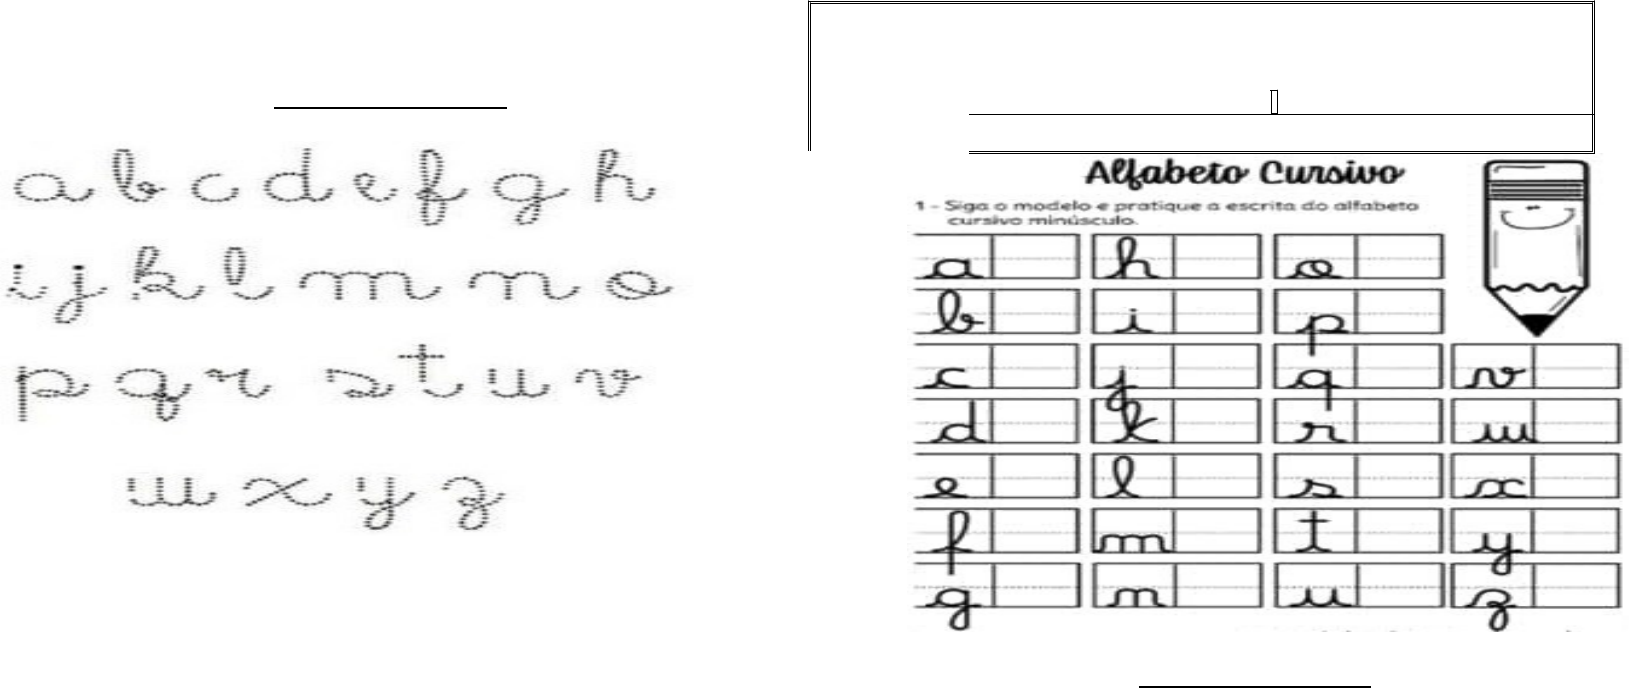 a b c d e f g h
i j k l m n o
p q r s t u v
w x y z
Alfabeto Cursivo
1 - Siga o modelo e pratique a escrita do alfabeto
cursivo minúsculo.
a h o
b i p
c j q v
d k r w
e l s x
f m t y
g n u z